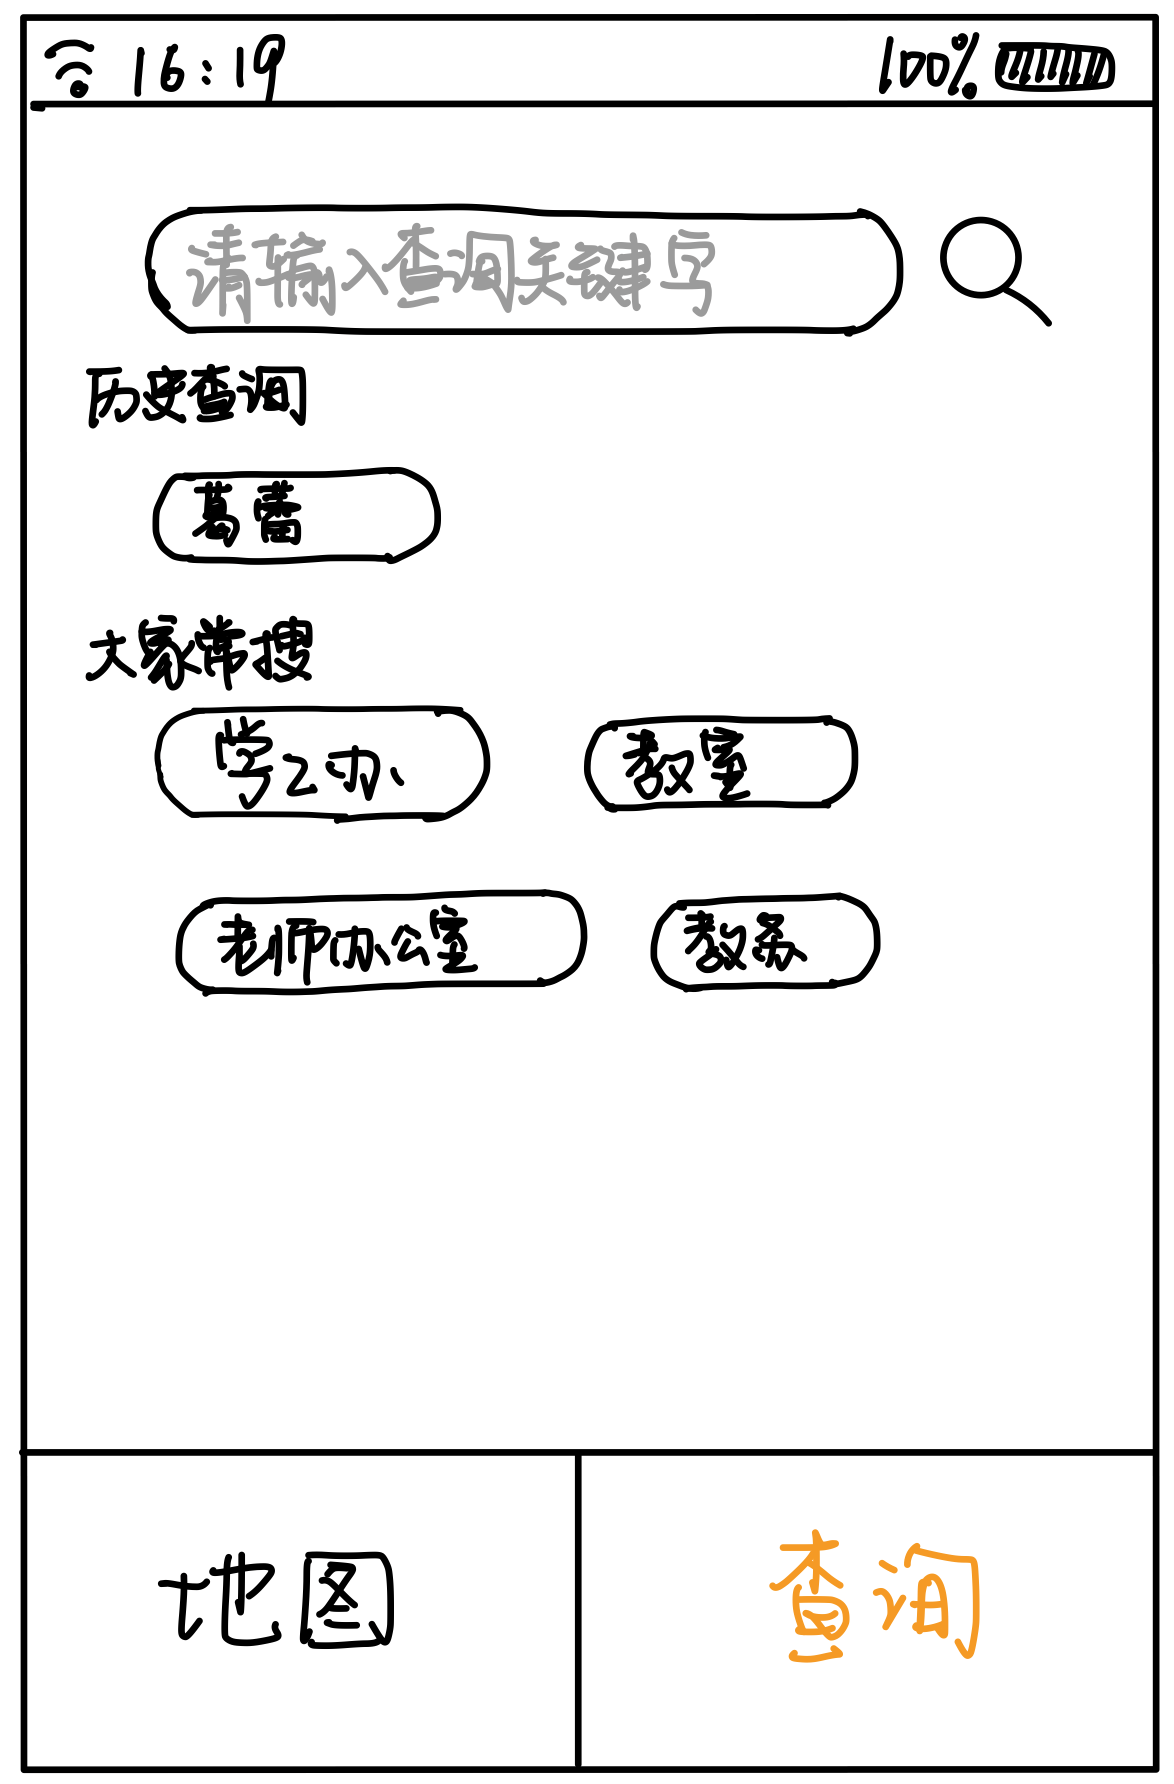 16:19 100%
请输入查询关键字
历史查询
葛蕾
大家常搜
学工办 教室
老师办公室 教务
地图 查询